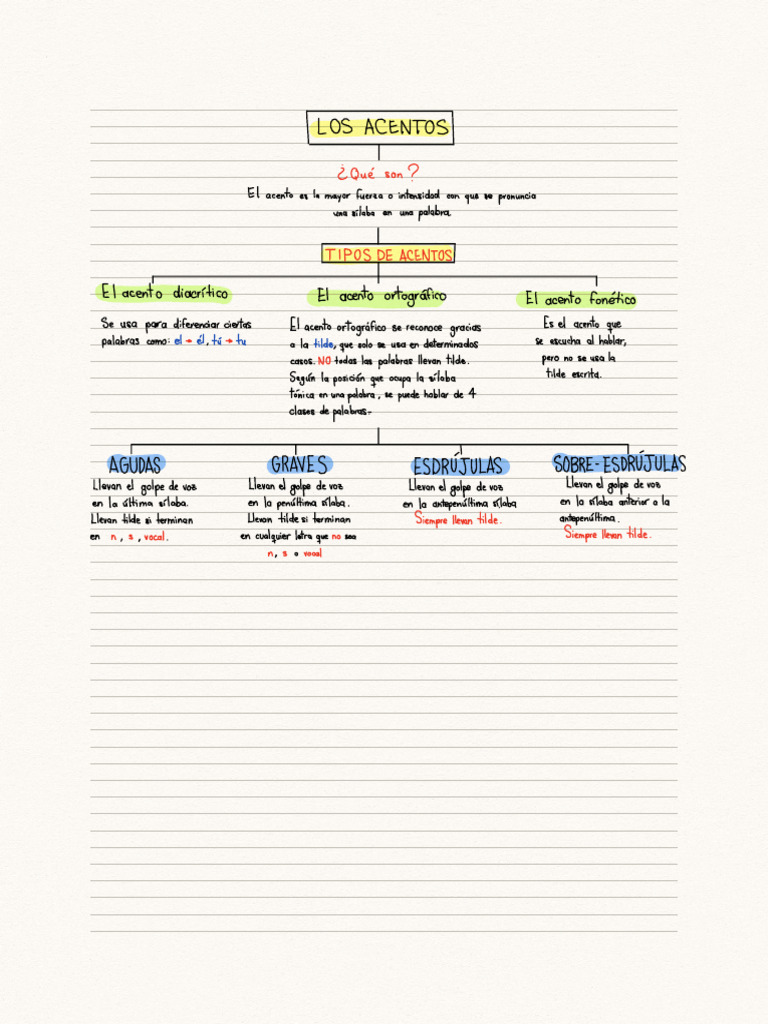 LOS ACENTOS
¿Qué son?
El acento es la mayor fuerza o intensidad con que se pronuncia
una sílaba en una palabra.
TIPOS DE ACENTOS
El acento diacrítico
Se usa para diferenciar ciertas
palabras como: el → él, tú → tu
El acento ortográfico
El acento ortográfico se reconoce gracias
a la tilde, que solo se usa en determinados
casos. NO todas las palabras llevan tilde.
Según la posición que ocupa la sílaba
tónica en una palabra, se puede hablar de 4
clases de palabras-
El acento fonético
Es el acento que
se escucha al hablar,
pero no se usa la
tilde escrita.
AGUDAS
Llevan el golpe de voz
en la última sílaba.
Llevan tilde si terminan
en n, s, vocal.
GRAVES
Llevan el golpe de voz
en la penúltima sílaba.
Llevan tilde si terminan
en cualquier letra que no sea
n, s o vocal
ESDRÚJULAS
Llevan el golpe de voz
en la antepenúltima sílaba
Siempre llevan tilde.
SOBRE-ESDRÚJULAS
Llevan el golpe de voz
en la sílaba anterior a la
antepenúltima.
Siempre llevan tilde.